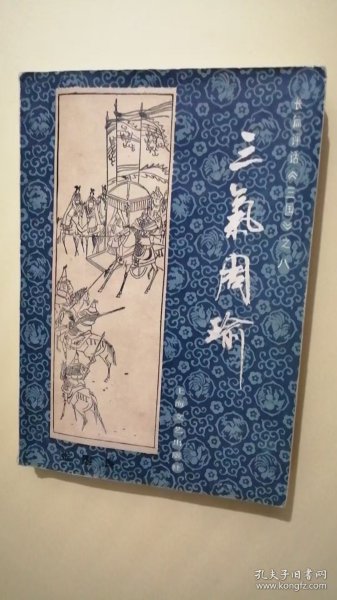 长篇评话《三国》之八
三氣周瑜
上海文艺出版社
孔夫子旧书网